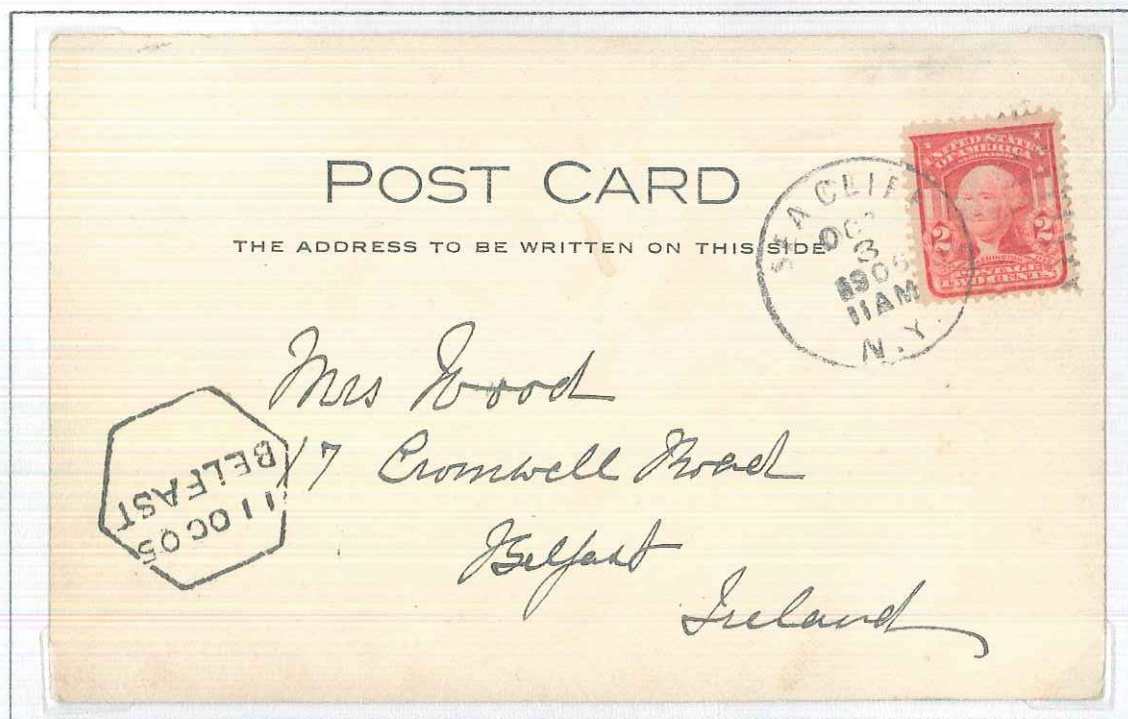 POST CARD
THE ADDRESS TO BE WRITTEN ON THIS SIDE
SEA CLIFF
OCT
3
1905
11AM
N.Y.
UNITED STATES
OF AMERICA
2 2
POSTAGE
TWO CENTS
Mrs Wood
17 Cromwell Road
Belfast
Ireland
BELFAST
11 OC 05